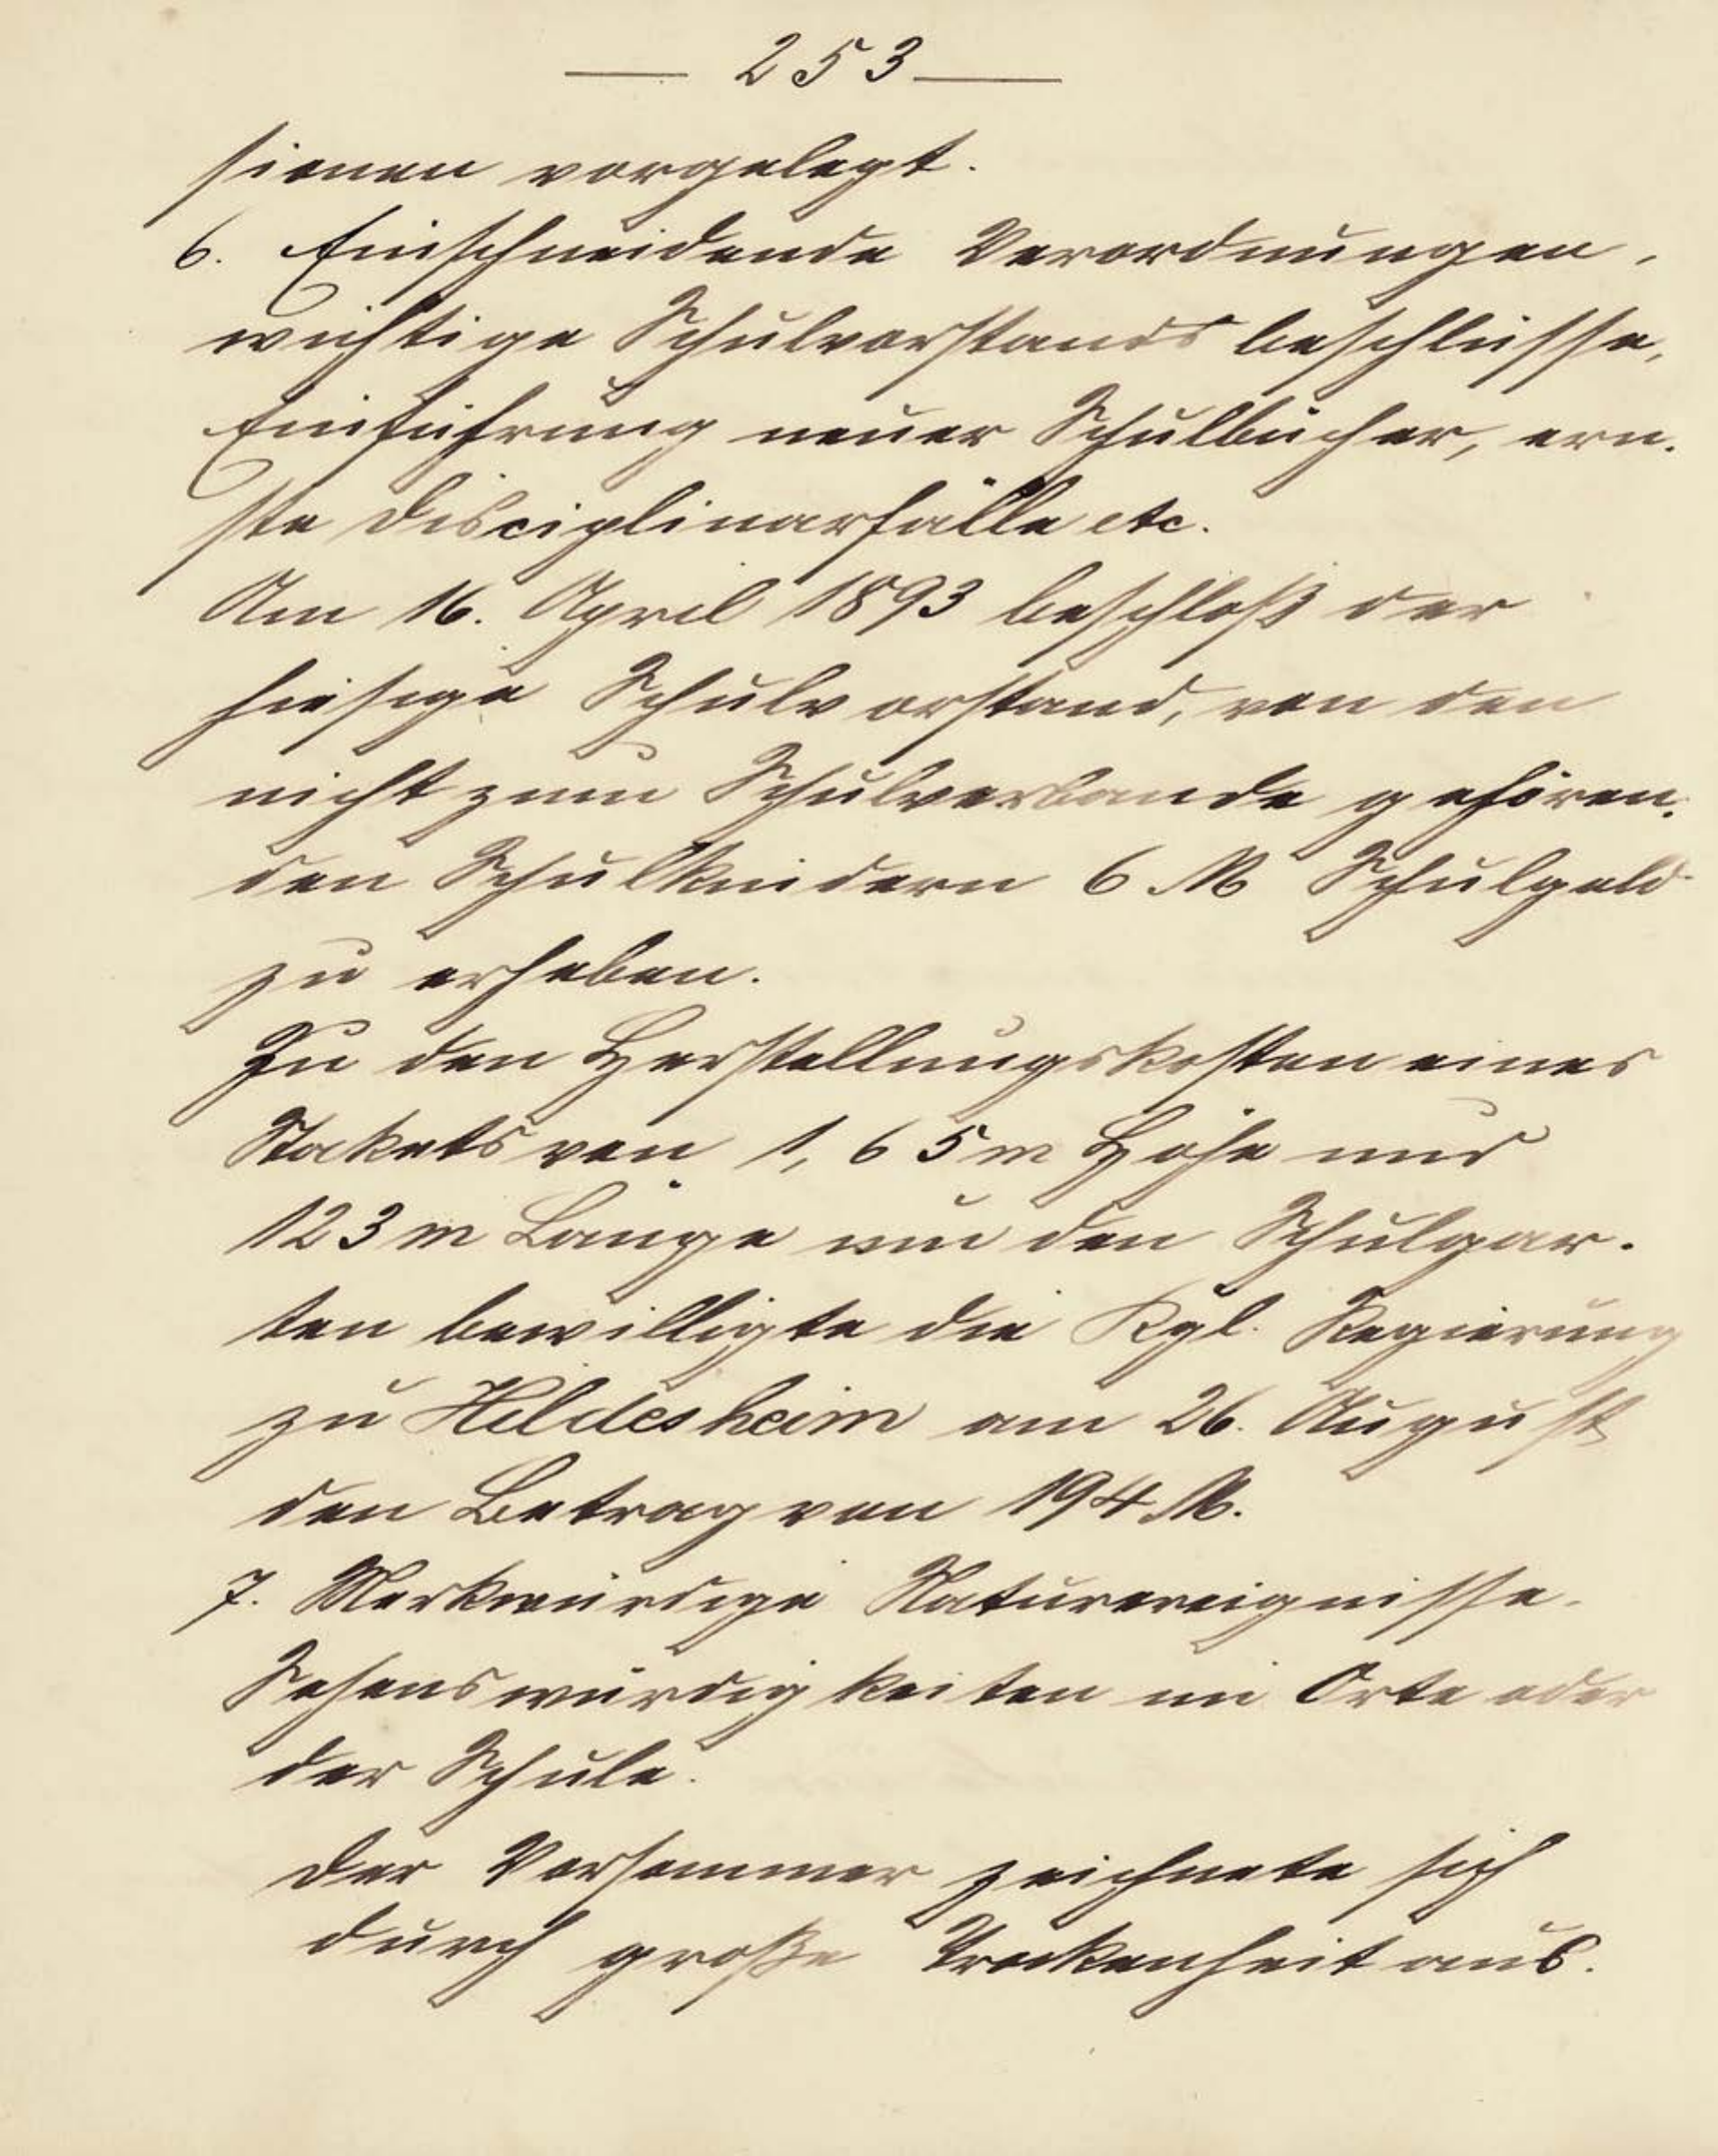 — 253 —
sionen vorgelegt.
6. Einschneidende Verordnungen,
wichtige Schulvorstandsbeschlüsse,
Einführung neuer Schulbücher, ern-
ste Disciplinarfälle etc.
Am 16. April 1893 beschloß der
hiesige Schulvorstand, von den
nicht zum Schulverbande gehören-
den Schulkindern 6 M Schulgeld
zu erheben.
Zu den Herstellungskosten eines
Stakets von 1,65 m Höhe und
123 m Länge um den Schulgar-
ten bewilligte die Kgl. Regierung
zu Hildesheim am 26. August
den Betrag von 194 M.
7. Merkwürdige Naturereignisse.
Sehenswürdigkeiten im Orte oder
der Schule.
Der Vorsommer zeichnete sich
durch große Trockenheit aus.